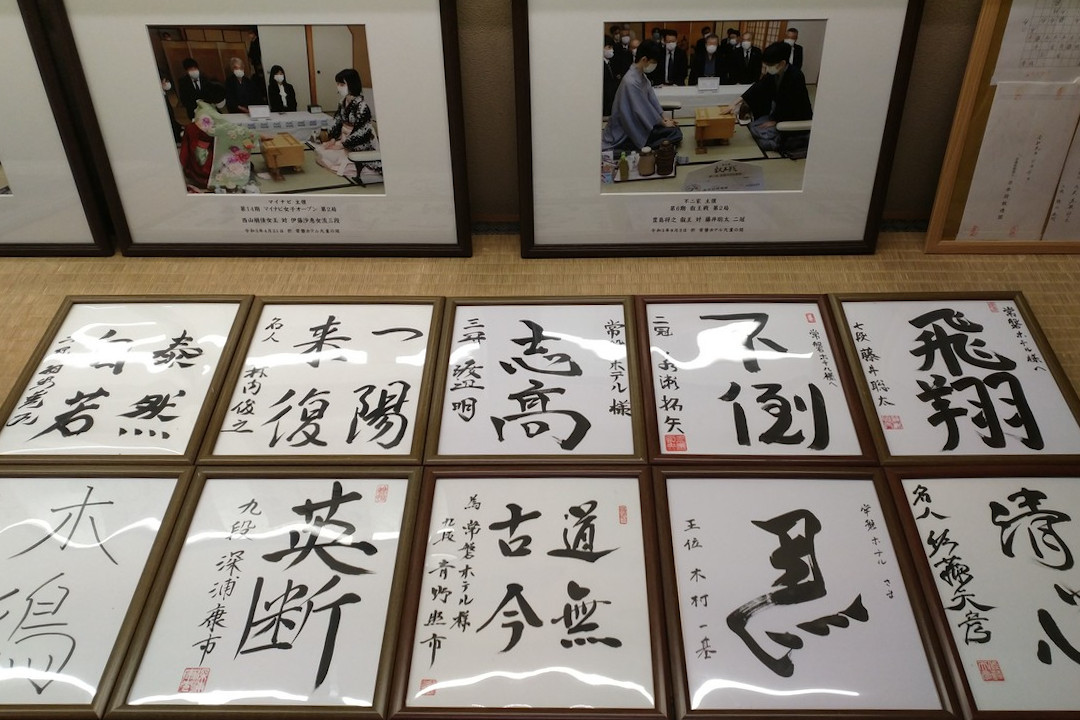 マイナビ 主催
第14期 マイナビ女子オープン 第2局
西山朋佳女王 対 伊藤沙恵女流三段
令和3年4月21日 於 常磐ホテル九重の間
不二家 主催
第6期 叡王戦 第2局
豊島将之 叡王 対 藤井聡太 二冠
於 常磐ホテル九重の間
泰然
自若
一陽
来復
名人 森内俊之
常磐ホテル様
志高
三冠 渡辺明
常磐ホテル様へ
不倒
二冠 永瀬拓矢
常磐ホテル様へ
飛翔
七段 藤井聡太
木
英断
九段 深浦康市
道無
古今
為 常磐ホテル様
九段 青野照市
常磐ホテル さま
忍
王位 木村一基
清心
名人 佐藤天彦